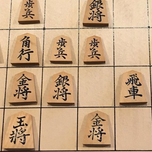 歩兵 銀将
角行 歩兵 歩兵
金将 銀将 飛車
玉将 金将